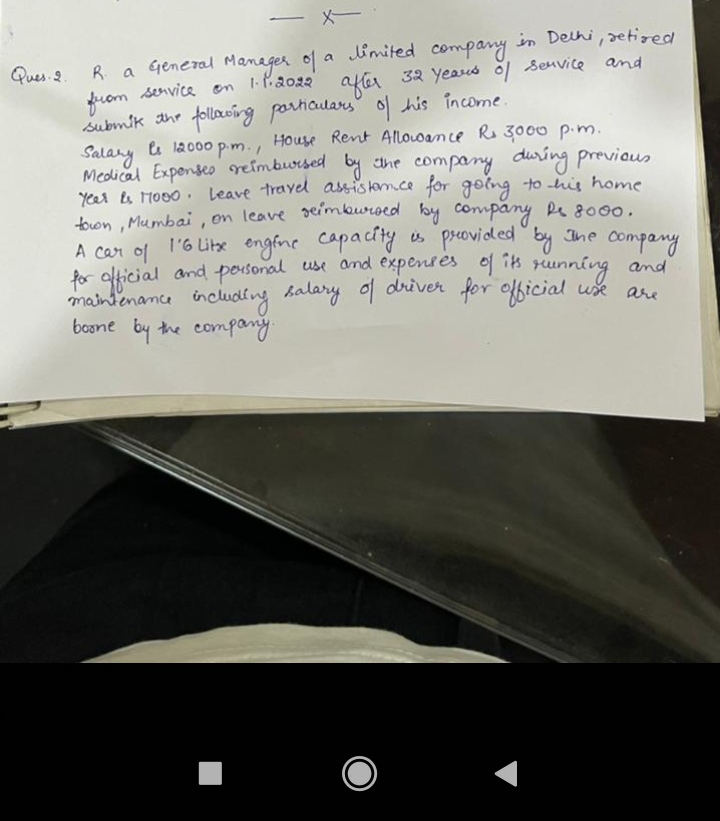 — X —
Ques. 2. R. a General Manager of a limited company in Delhi, retired
from service on 1.1.2022 after 32 years of service and
submit the following particulars of his income.
Salary Rs 12000 p.m., House Rent Allowance Rs 3,000 p.m.
Medical Expenses reimbursed by the company during previous
Year Rs 17000. Leave travel assistance for going to his home
town, Mumbai, on leave reimbursed by company Rs 8000.
A car of 1.6 Litre engine capacity is provided by the company
for official and personal use and expenses of its running and
maintenance including salary of driver for official use are
boone by the company.